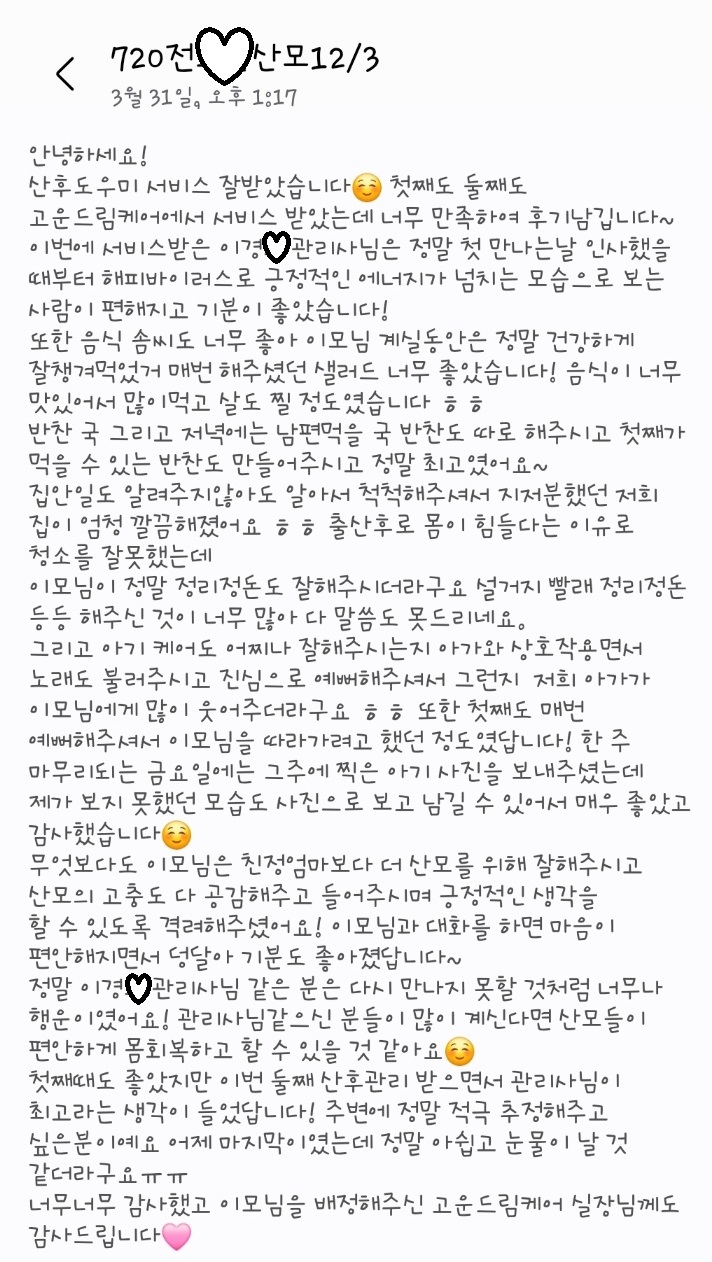 720전 산모12/3
3월 31일, 오후 1:17
안녕하세요!
산후도우미 서비스 잘받았습니다☺️ 첫째도 둘째도
고운드림케어에서 서비스 받았는데 너무 만족하여 후기남깁니다~
이번에 서비스받은 이경 관리사님은 정말 첫 만나는날 인사했을
때부터 해피바이러스로 긍정적인 에너지가 넘치는 모습으로 보는
사람이 편해지고 기분이 좋았습니다!
또한 음식 솜씨도 너무 좋아 이모님 계실동안은 정말 건강하게
잘챙겨먹었거 매번 해주셨던 샐러드 너무 좋았습니다! 음식이 너무
맛있어서 많이먹고 살도 찔 정도였습니다 ㅎㅎ
반찬 국 그리고 저녁에는 남편먹을 국 반찬도 따로 해주시고 첫째가
먹을 수 있는 반찬도 만들어주시고 정말 최고였어요~
집안일도 알려주지않아도 알아서 척척해주셔서 지저분했던 저희
집이 엄청 깔끔해졌어요 ㅎㅎ 출산후로 몸이 힘들다는 이유로
청소를 잘못했는데
이모님이 정말 정리정돈도 잘해주시더라구요 설거지 빨래 정리정돈
등등 해주신 것이 너무 많아 다 말씀도 못드리네요.
그리고 아기 케어도 어찌나 잘해주시는지 아가와 상호작용면서
노래도 불러주시고 진심으로 예뻐해주셔서 그런지 저희 아가가
이모님에게 많이 웃어주더라구요 ㅎㅎ 또한 첫째도 매번
예뻐해주셔서 이모님을 따라가려고 했던 정도였답니다! 한 주
마무리되는 금요일에는 그주에 찍은 아기 사진을 보내주셨는데
제가 보지 못했던 모습도 사진으로 보고 남길 수 있어서 매우 좋았고
감사했습니다☺️
무엇보다도 이모님은 친정엄마보다 더 산모를 위해 잘해주시고
산모의 고충도 다 공감해주고 들어주시며 긍정적인 생각을
할 수 있도록 격려해주셨어요! 이모님과 대화를 하면 마음이
편안해지면서 덩달아 기분도 좋아졌답니다~
정말 이경 관리사님 같은 분은 다시 만나지 못할 것처럼 너무나
행운이였어요! 관리사님같으신 분들이 많이 계신다면 산모들이
편안하게 몸회복하고 할 수 있을 것 같아요☺️
첫째때도 좋았지만 이번 둘째 산후관리 받으면서 관리사님이
최고라는 생각이 들었답니다! 주변에 정말 적극 추정해주고
싶은분이예요 어제 마지막이였는데 정말 아쉽고 눈물이 날 것
같더라구요ㅠㅠ
너무너무 감사했고 이모님을 배정해주신 고운드림케어 실장님께도
감사드립니다🩷